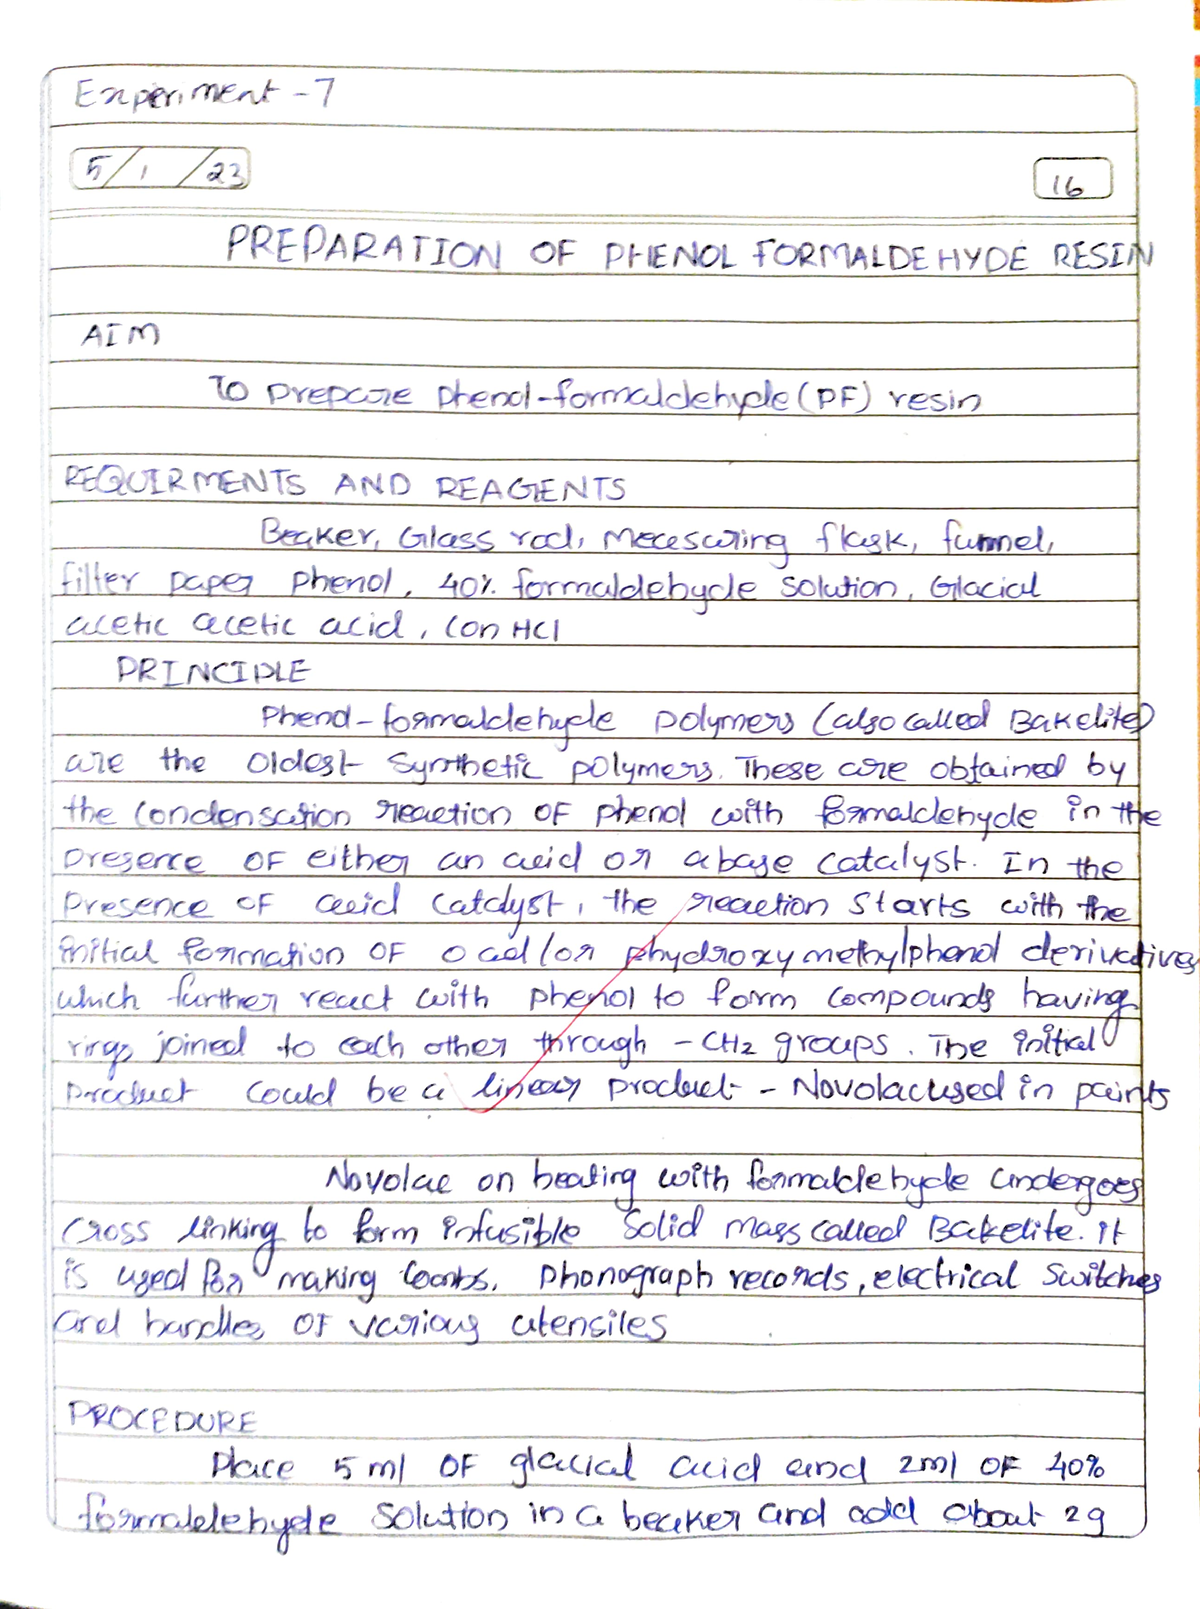 Experiment - 7
5/1/23
16
PREPARATION OF PHENOL FORMALDEHYDE RESIN
AIM
To prepare phenol-formaldehyde (PF) resin
REQUIRMENTS AND REAGENTS
Beaker, Glass rod, Measuring flask, funnel,
filter paper phenol, 40% formaldehyde solution, Glacial
acetic acetic acid, Con HCl
PRINCIPLE
Phenol-formaldehyde polymers (also called Bakelite)
are the oldest synthetic polymers. These are obtained by
the condensation reaction OF phenol with formaldehyde in the
presence OF either an acid or a base catalyst. In the
presence OF acid catalyst, the reaction starts with the
initial formation OF o and/or phydroxymethylphenol derivatives
which further react with phenol to form compounds having
rings joined to each other through - CH2 groups. The initial
product could be a linear product - Novolac used in paints
Novolac on heating with formaldehyde undergoes
cross linking to form infusible solid mass called Bakelite. it
is used for making combs, phonograph records, electrical switches
and handles OF various utensiles
PROCEDURE
Place 5 ml OF glacial acid and 2ml OF 40%
formaldehyde solution in a beaker and add about 2g